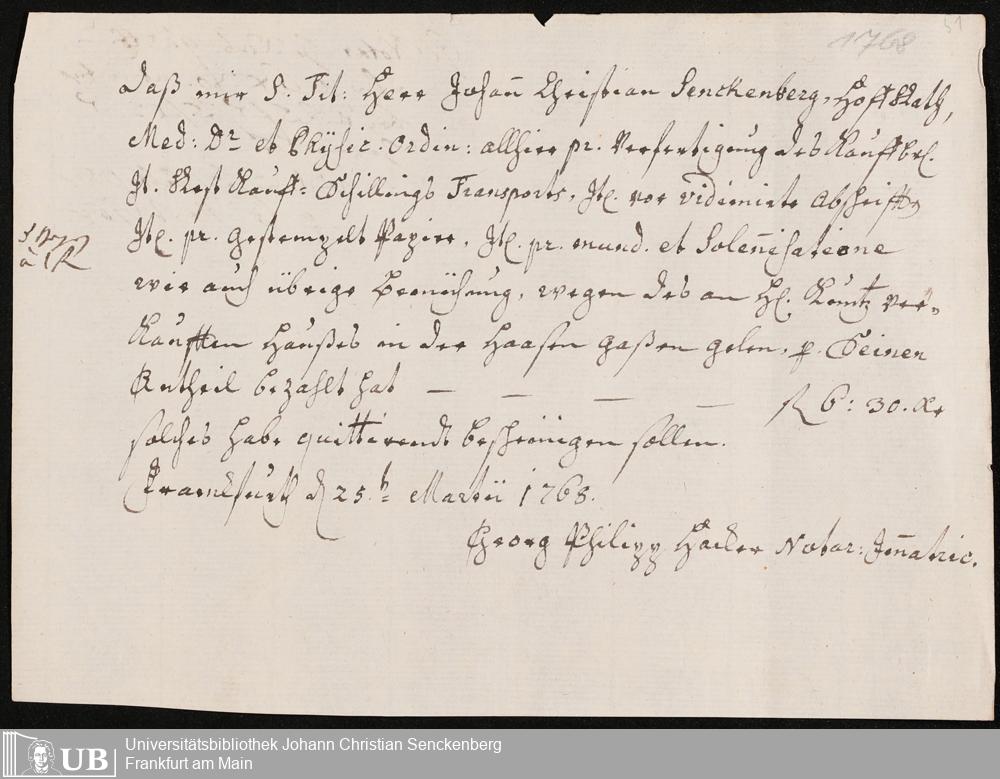 1768
51
Daß mir S. Tit: Herr Johan̄ Christian Senckenberg, Hoff Rath,
Med: Dr et Physic. Ordin: allhier pr. Verfertigung des Kauffbrf.
It. Rest Kauff-Schillings Transports, It. vor vidimirte Abschrifft
It. pr. gestempelt Papier, It. pr. mund. et Solen̄isatione
wie auch übrige Bemühung, wegen des an H. Kuntz ver-
kaufften Haußes in der Haasen Gaßen gelen, p. Seinen
Antheil bezahlt hat — — — — fl 6: 30. Xr
solches habe quittirendt bescheinigen sollen.
Franckfurth d 25.t Martii 1768.
Georg Philipp Hacker Notar: Im̄atric.
UB
Universitätsbibliothek Johann Christian Senckenberg
Frankfurt am Main